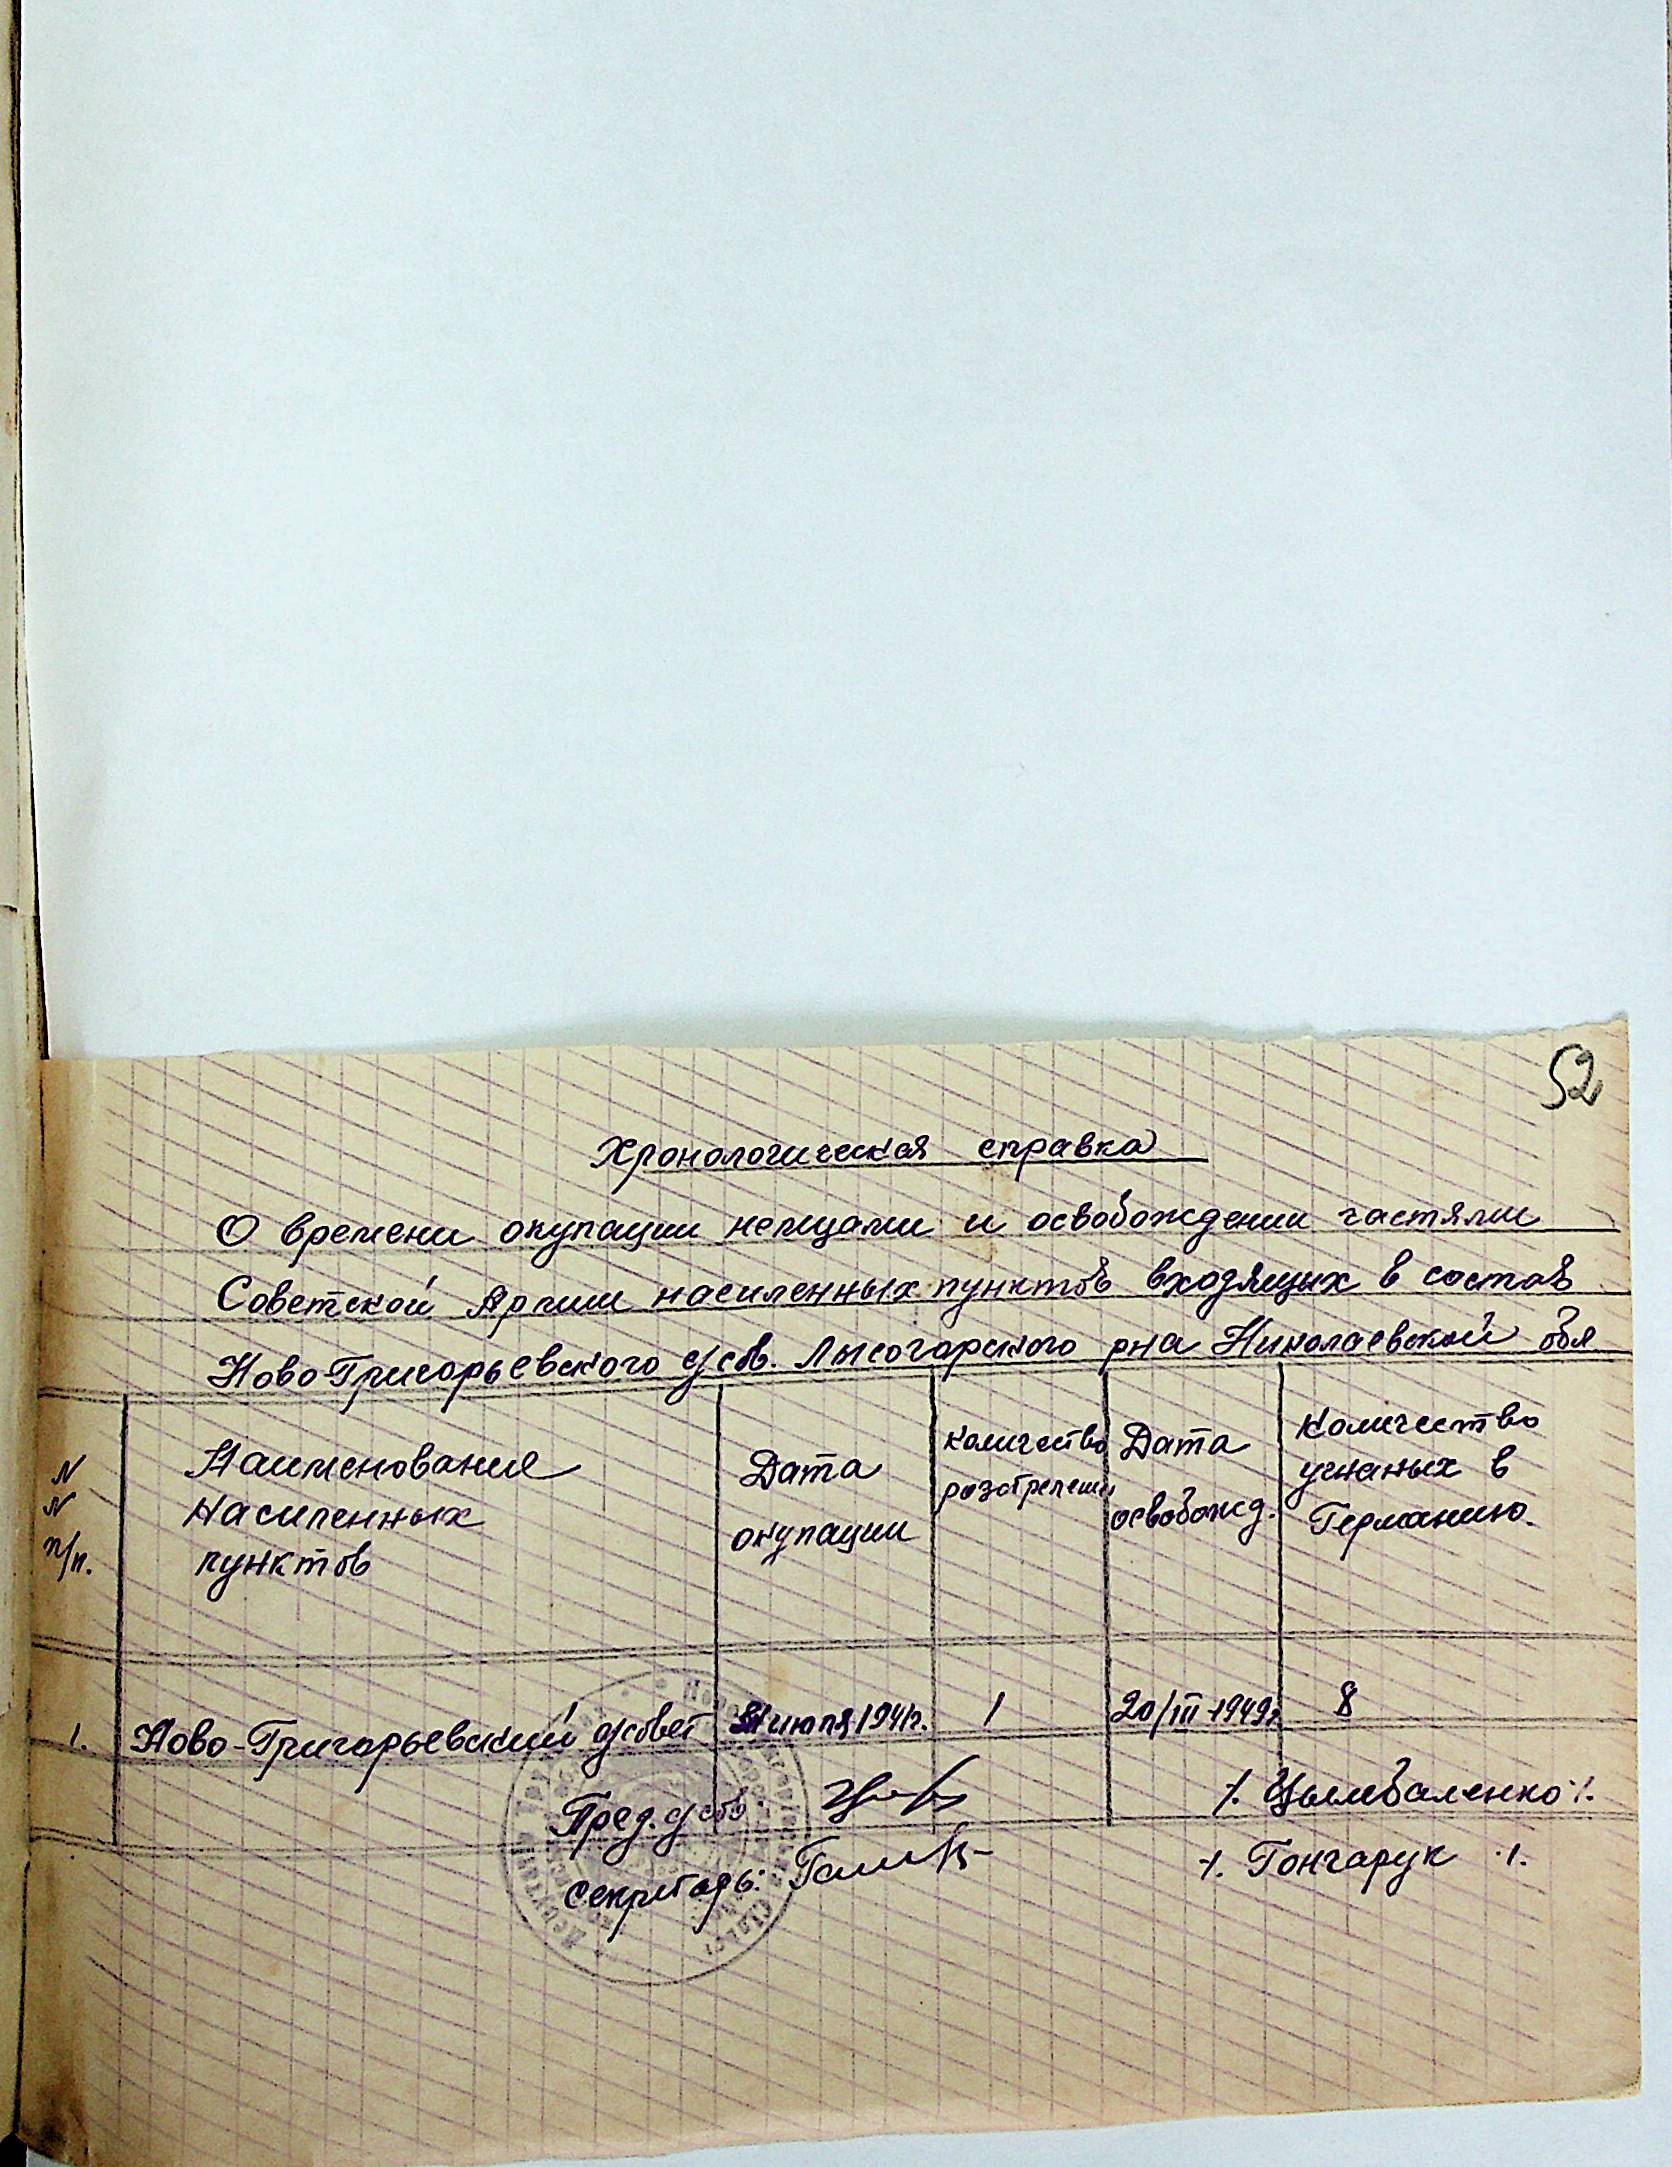 52
Хронологическая справка
О времени окупации немцами и освобождении частями
Советской Армии населенных пунктов входящих в состав
Ново-Григорьевского с/сов. Лысогорского рна Николаевской обл
N
N
п/п.
Наименование
населенных
пунктов
Дата
окупации
количество
розстрелених
Дата
освобожд.
Количество
угнаных в
Германию.
1. Ново-Григорьевский с/совет июля 1941г. 1 20/III-1949г 8
Пред. с/сов. ./. Цымбаленко ./.
Секретарь: ./. Гончарук ./.